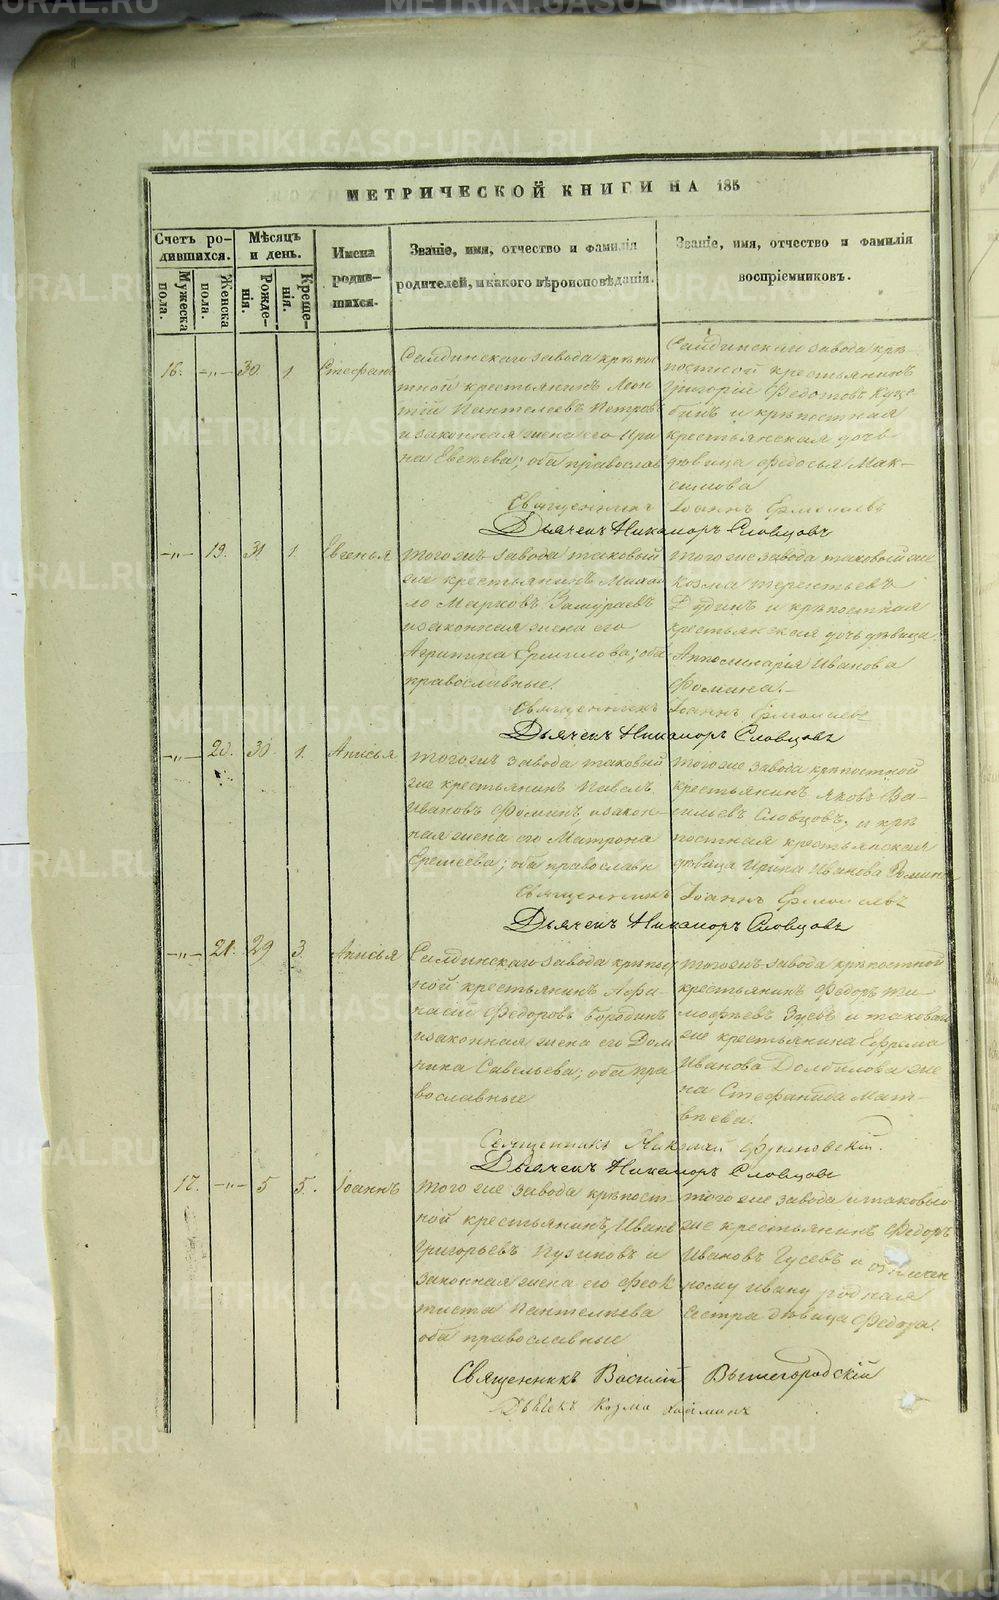 МЕТРИЧЕСКОЙ КНИГИ НА 185
Счетъ родившихся.
Мужеска пола.
Женска пола.
Мѣсяцъ и день.
Рожденія.
Крещенія.
Имена родившихся.
Званіе, имя, отчество и фамилія родителей, и какого вѣроисповѣданія.
Званіе, имя, отчество и фамилія воспріемниковъ.
16. —„— 30. 1 Стефанъ
Салдинскаго завода крѣпос
тной крестьянинъ Леон
тій Пантелеевъ Петровъ
и законная жена его Ири
на Евсѣева; оба православ
Салдинскаго завода крѣ-
постной крестьянинъ
Григорій Федотовъ
и крѣпостная
крестьянская дочь
дѣвица Федосья Мак-
симова
Священникъ Іоаннъ Ермолаевъ
Дьячекъ Никаноръ Словцовъ
—„— 19. 31 1. Евгенья
того жъ завода таковый
же крестьянинъ Михаи
ло Марковъ Замураевъ
и законная жена его
Агрипина Ермилова; оба
православные.
того же завода таковый же
Козма Терентьевъ
Дудинъ и крѣпостная
крестьянская дочь дѣвица
Апполинарія Иванова
Фомина.—
Священникъ Іоаннъ Ермолаевъ
Дьячекъ Никаноръ Словцовъ
—„— 20. 30. 1. Анисья
того жъ завода таковый
же крестьянинъ Павелъ
Ивановъ Фоминъ, и закон-
ная жена его Матрона
Еремеева; оба православн
того же завода крѣпостной
крестьянинъ Яковъ Ва-
сильевъ Словцовъ, и крѣ
постная крестьянская
дѣвица Ирина Иванова Фомин
Священникъ Іоаннъ Ермолаевъ
Дьячекъ Никаноръ Словцовъ
—„— 21. 29 3. Анисья
Салдинскаго завода крѣпост
ной крестьянинъ Афа-
насій Федоровъ Бородинъ
и законная жена его Дом
ника Савельева; оба пра
вославные
того жъ завода крѣпостной
крестьянинъ Федоръ Ти-
мофѣевъ Зуевъ и таковаго
же крестьянина Ефрема
Иванова Долбилова же
на Стефанида Мат-
вѣева.
Священникъ Николай Флоровскій.
Дьячекъ Никаноръ Словцовъ
17. —„— 5 5. Іоаннъ
того же завода крѣпост-
ной крестьянинъ Иванъ
Григорьевъ Пузиковъ и
законная жена его Феок
тиста Пантелѣева
оба православные
того же завода и таковый
же крестьянинъ Федоръ
Ивановъ Гусевъ и означен
ному Ивану родная
сестра дѣвица Федора.
Священникъ Василій Вышегородскій
Дьячекъ Козма